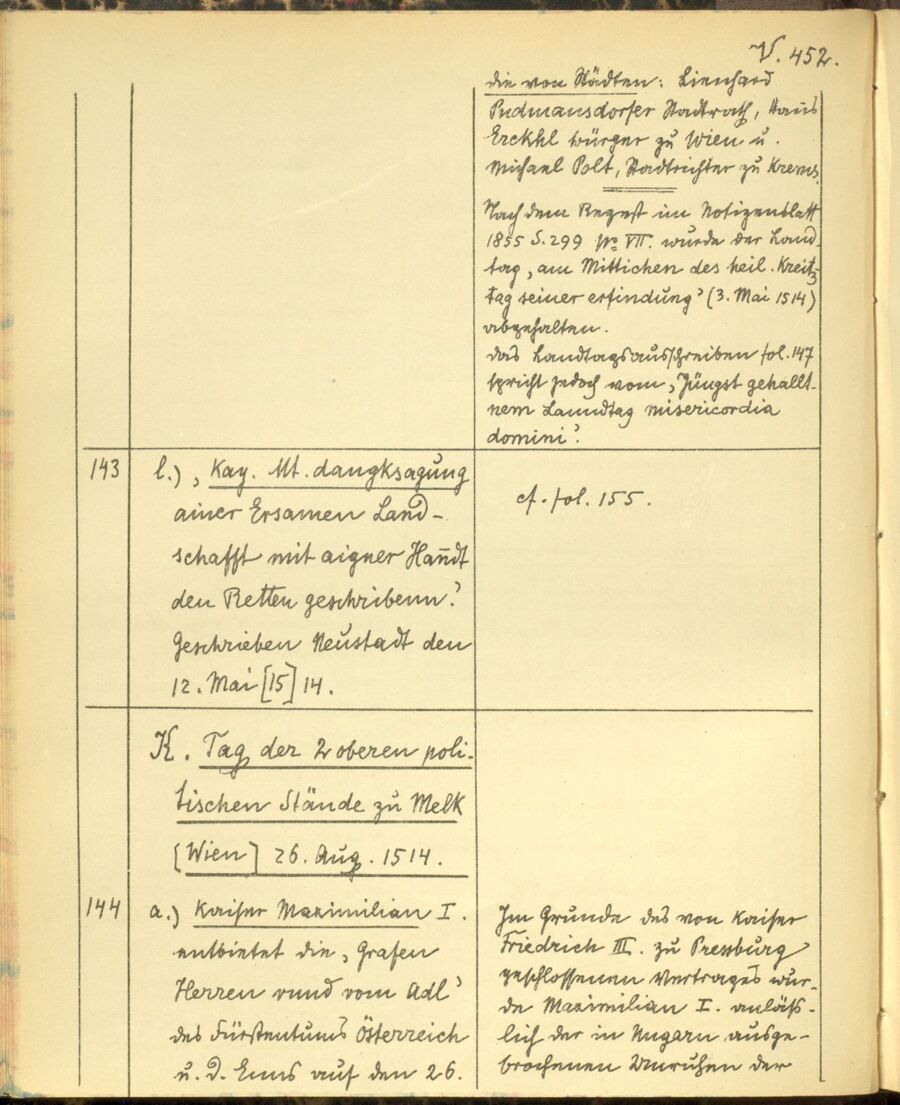 V. 452.
die von Städten: Lienhard
Pudmansdorfer Stadtrath, Hans
Erckhl bürger zu Wien u.
Michael Polt, Stadtrichter zu Krems.
Nach dem Regest im Notizenblatt
1855 S. 299 No VII. wurde der Land-
tag „am Mittichen des heil. Kreitz-
tag seiner erfindung“ (3. Mai 1514)
abgehalten.
Das Landtagsausschreiben fol. 147
spricht jedoch vom „Jüngst gehallt-
nem Lanndtag misericordia
domini“.
143 l.) „Kay. Mt. dangksagung
ainer Ersamen Land-
schafft mit aigner Hanndt
den Retten geschribenn“.
Geschrieben Neustadt den
12. Mai [15]14.
cf. fol. 155.
K. Tag der 2 oberen poli-
tischen Stände zu Melk
[Wien] 26. Aug. 1514.
144 a.) Kaiser Maximilian I.
entbietet die „Grafen
Herren vund vom Adl“
des Fürstentums Österreich
u. d. Enns auf den 26.
Im Grunde des von Kaiser
Friedrich III. zu Pressburg
geschlossenen Vertrages wur-
de Maximilian I. anläss-
lich der in Ungarn ausge-
brochenen Unruhen der